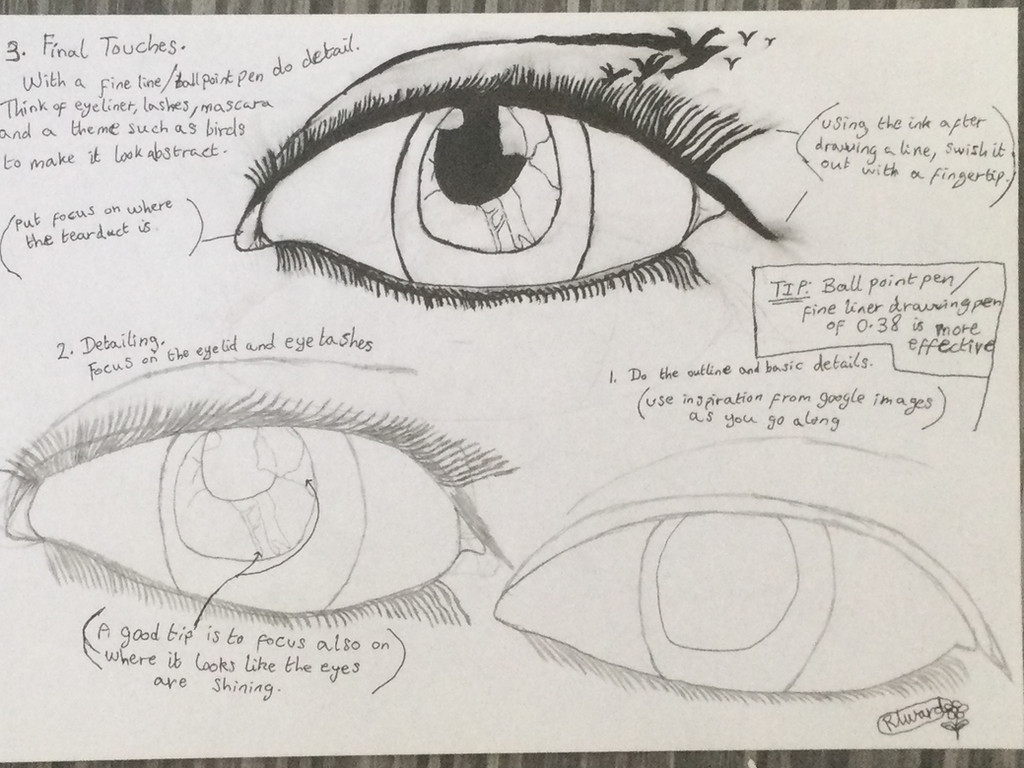 3. Final Touches.
With a fine line/ball point pen do detail.
Think of eyeliner, lashes, mascara
and a theme such as birds
to make it look abstract.
(put focus on where
the tearduct is.)
(Using the ink after
drawing a line, swish it
out with a fingertip.)
TIP: Ball point pen/
fine liner drawing pen
of 0.38 is more
effective
2. Detailing.
Focus on the eyelid and eyelashes
1. Do the outline and basic details.
(use inspiration from google images)
as you go along
(A good tip is to focus also on
where it looks like the eyes
are shining.)